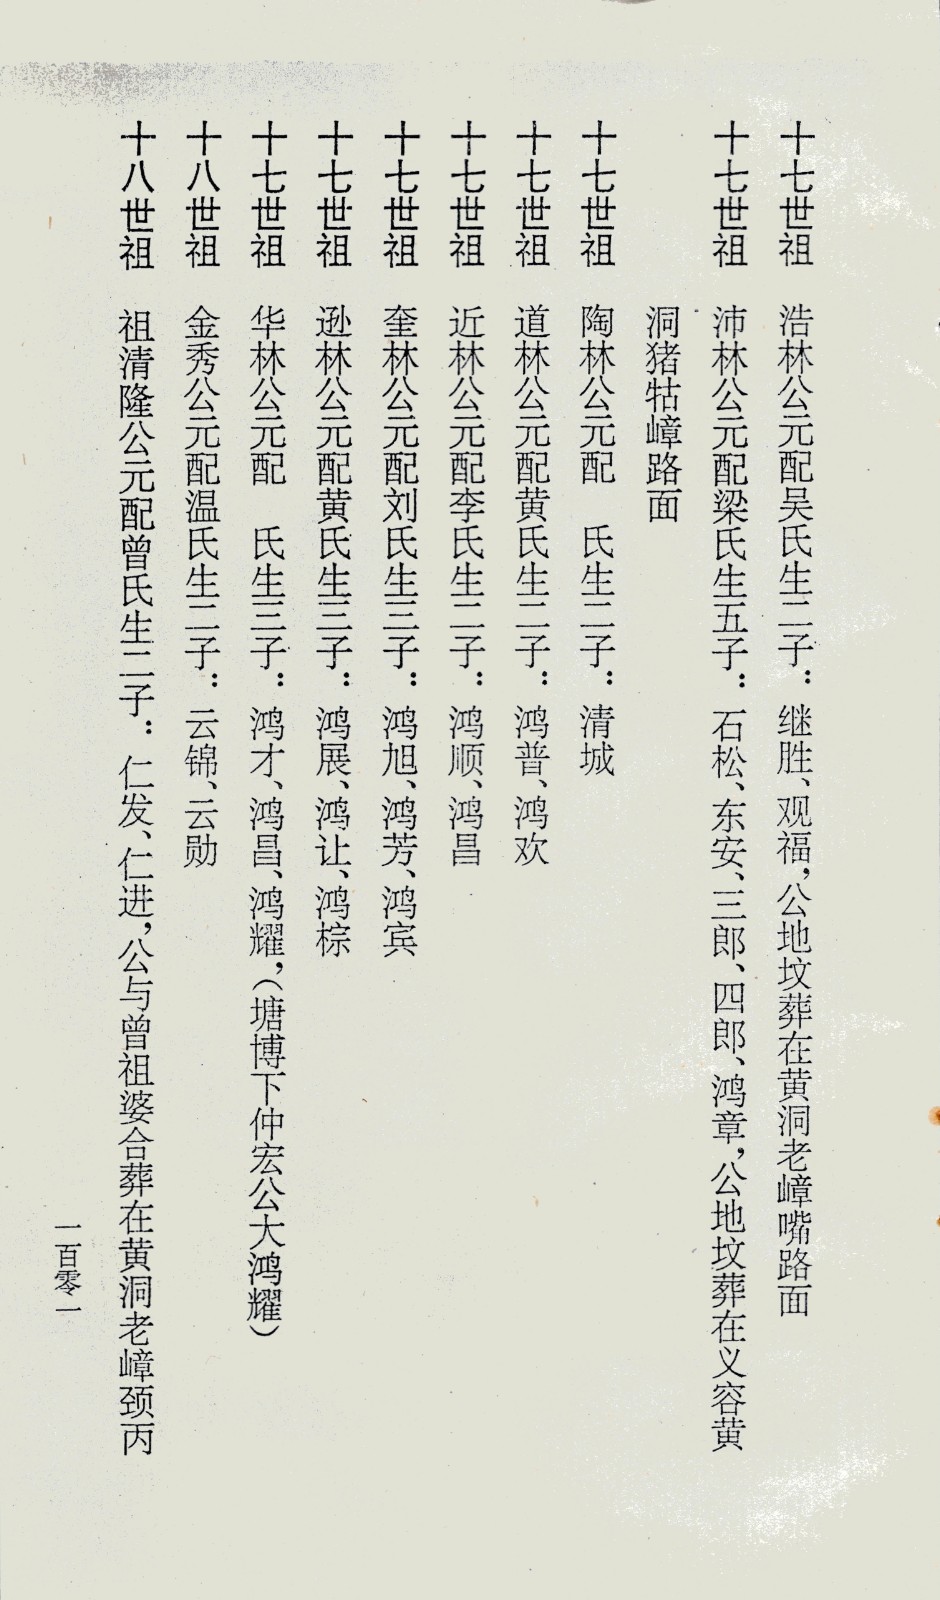 十七世祖　浩林公元配吴氏生二子：继胜、观福，公地坟葬在黄洞老嶂嘴路面
十七世祖　沛林公元配梁氏生五子：石松、东安、三郎、四郎、鸿章，公地坟葬在义容黄
洞猪牯嶂路面
十七世祖　陶林公元配　氏生二子：清城
十七世祖　道林公元配黄氏生二子：鸿普、鸿欢
十七世祖　近林公元配李氏生二子：鸿顺、鸿昌
十七世祖　奎林公元配刘氏生三子：鸿旭、鸿芳、鸿宾
十七世祖　逊林公元配黄氏生三子：鸿展、鸿让、鸿棕
十七世祖　华林公元配　氏生三子：鸿才、鸿昌、鸿耀，（塘博下仲宏公大鸿耀）
十八世祖　金秀公元配温氏生二子：云锦、云勋
十八世祖　祖清隆公元配曾氏生二子：仁发、仁进，公与曾祖婆合葬在黄洞老嶂颈丙
一百零一